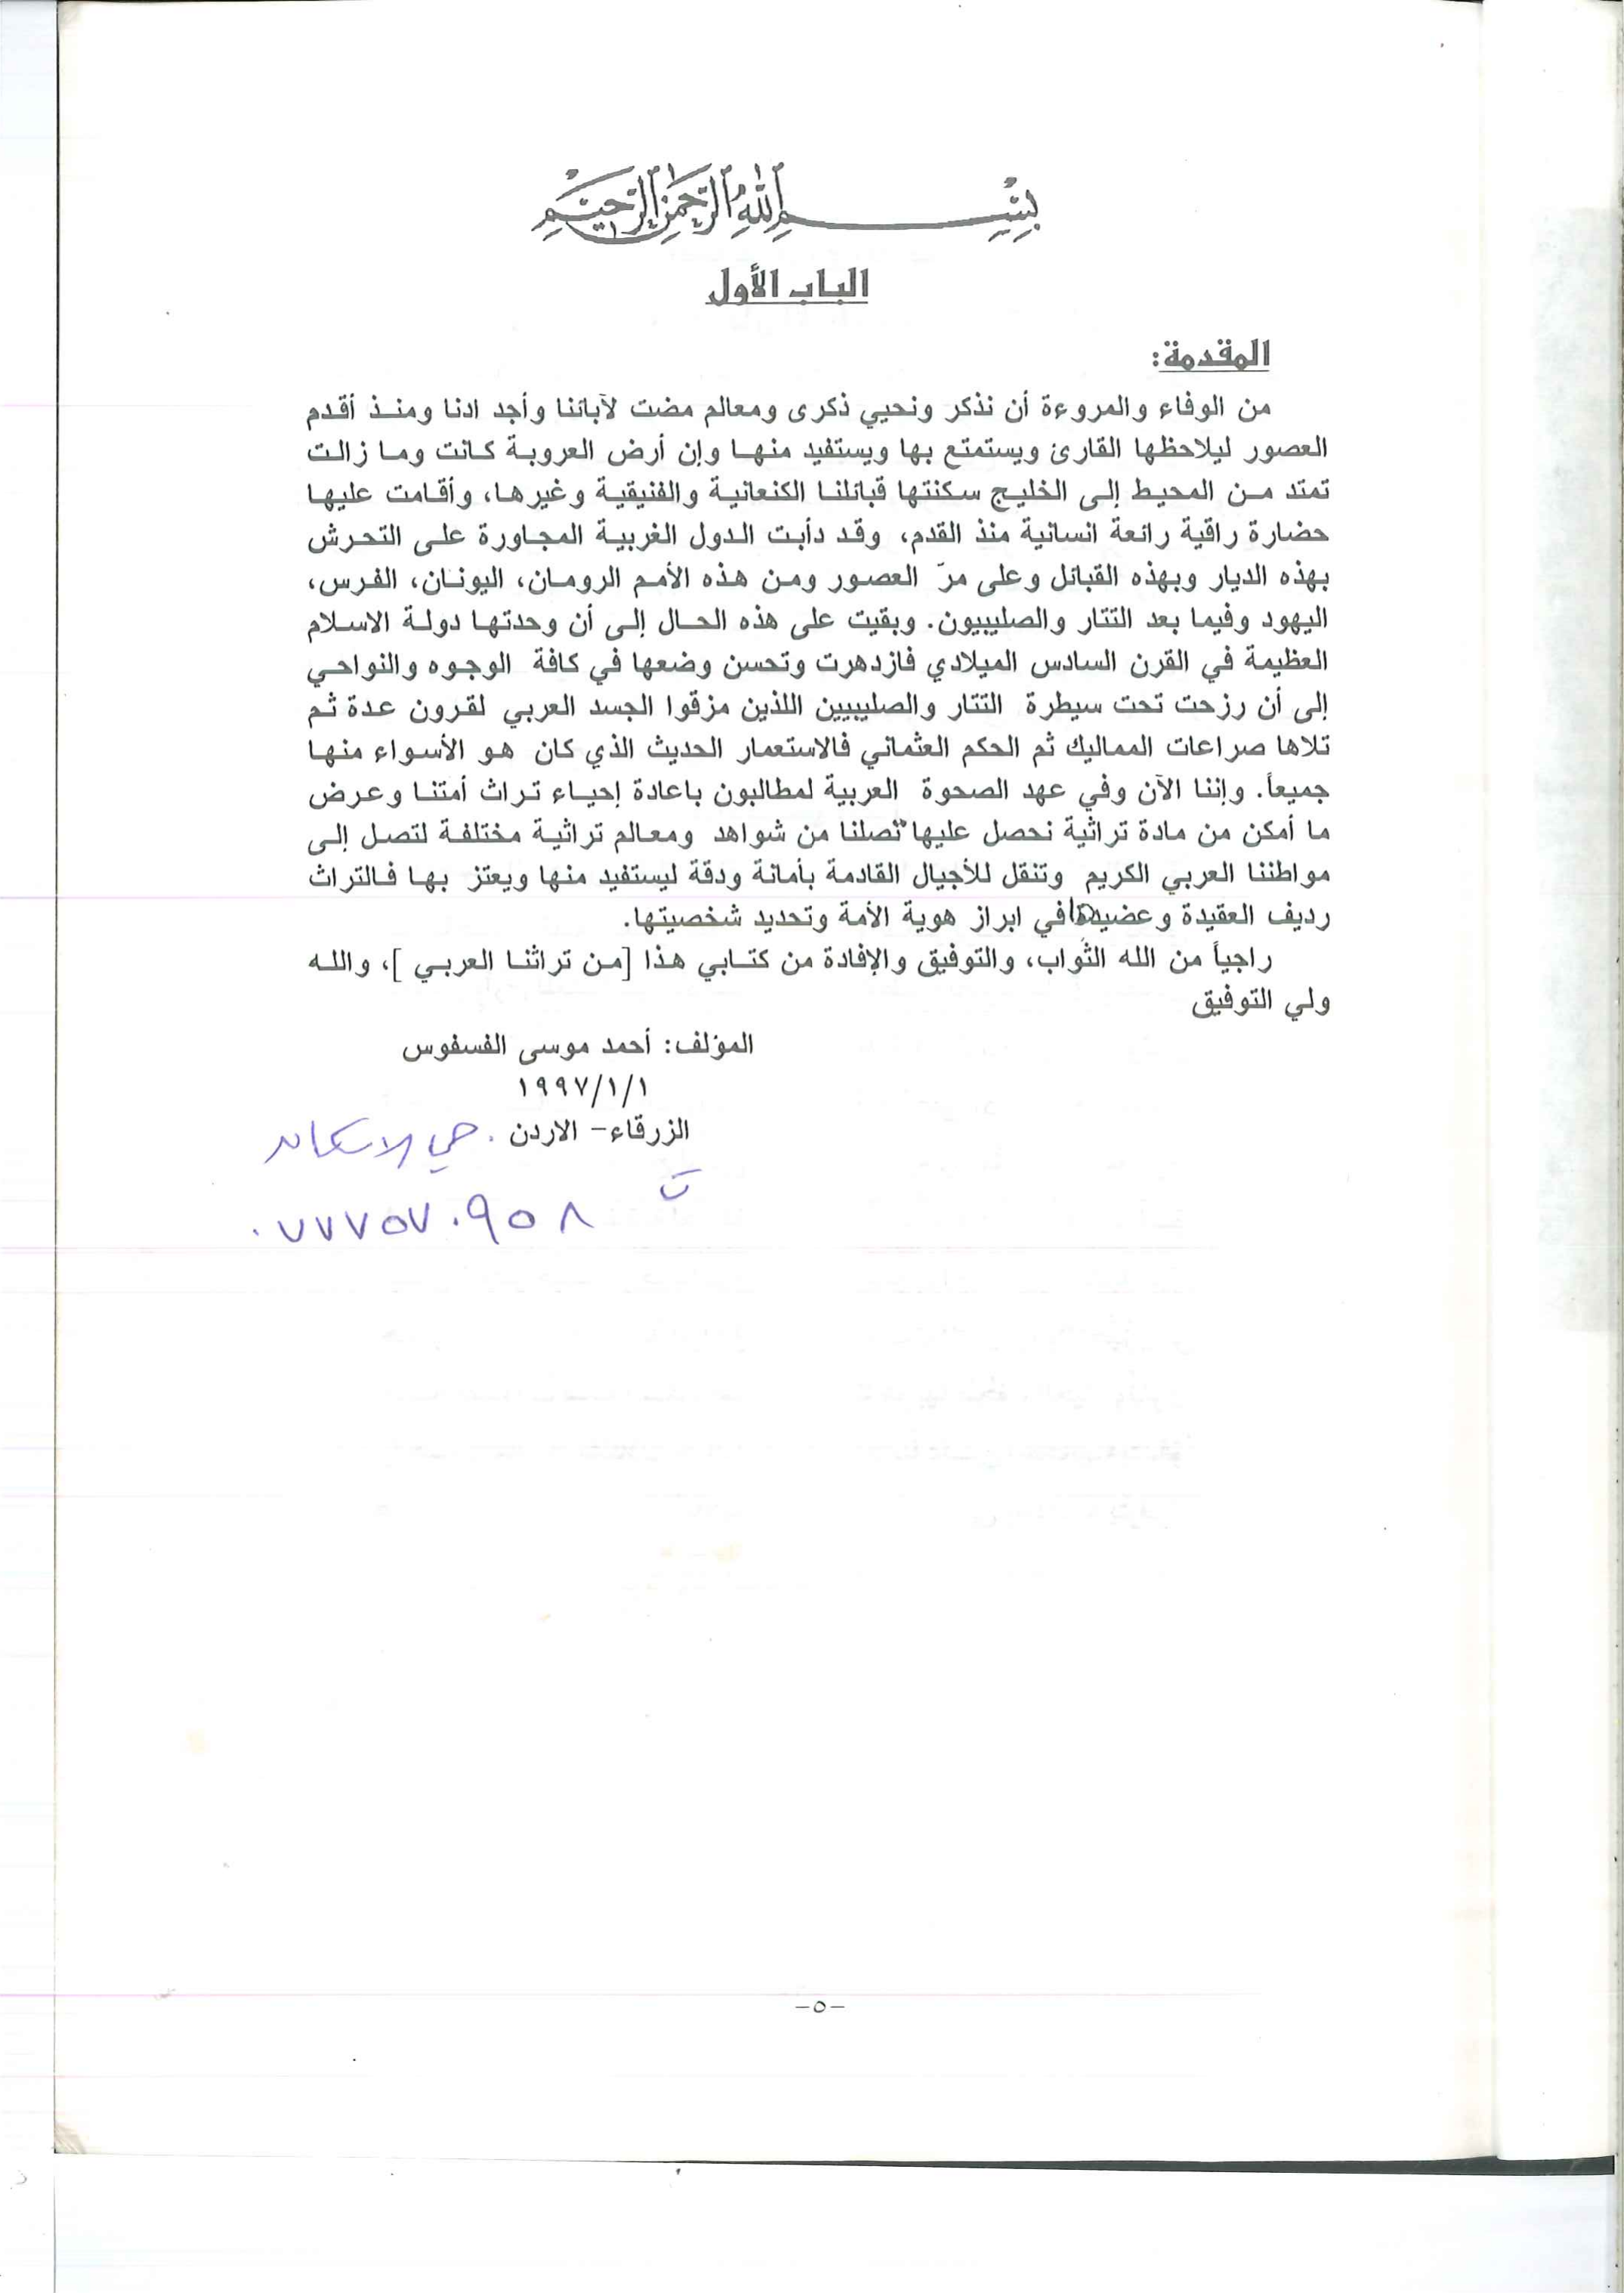 بسم الله الرحمن الرحيم
الباب الأول
المقدمة:
من الوفاء والمروءة أن نذكر ونحيي ذكرى ومعالم مضت لآبائنا وأجد ادنا ومنذ أقدم
العصور ليلاحظها القارئ ويستمتع بها ويستفيد منها وإن أرض العروبة كانت وما زالت
تمتد من المحيط إلى الخليج سكنتها قبائلنا الكنعانية والفنيقية وغيرها، وأقامت عليها
حضارة راقية رائعة انسانية منذ القدم، وقد دأبت الدول الغربية المجاورة على التحرش
بهذه الديار وبهذه القبائل وعلى مرّ العصور ومن هذه الأمم الرومان، اليونان، الفرس،
اليهود وفيما بعد التتار والصليبيون. وبقيت على هذه الحال إلى أن وحدتها دولة الاسلام
العظيمة في القرن السادس الميلادي فازدهرت وتحسن وضعها في كافة الوجوه والنواحي
إلى أن رزحت تحت سيطرة التتار والصليبيين اللذين مزقوا الجسد العربي لقرون عدة ثم
تلاها صراعات المماليك ثم الحكم العثماني فالاستعمار الحديث الذي كان هو الأسواء منها
جميعاً. وإننا الآن وفي عهد الصحوة العربية لمطالبون باعادة إحياء تراث أمتنا وعرض
ما أمكن من مادة تراثية نحصل عليها تصلنا من شواهد ومعالم تراثية مختلفة لتصل إلى
مواطننا العربي الكريم وتنقل للأجيال القادمة بأمانة ودقة ليستفيد منها ويعتز بها فالتراث
رديف العقيدة وعضيدها في ابراز هوية الأمة وتحديد شخصيتها.
راجياً من الله الثواب، والتوفيق والإفادة من كتابي هذا [من تراثنا العربي]، والله
ولي التوفيق
المؤلف: أحمد موسى الفسفوس
١٩٩٧/١/١
الزرقاء- الاردن . حي الاسكان
ت
٠٧٧٧٥٧٠٩٥٨
-٥-